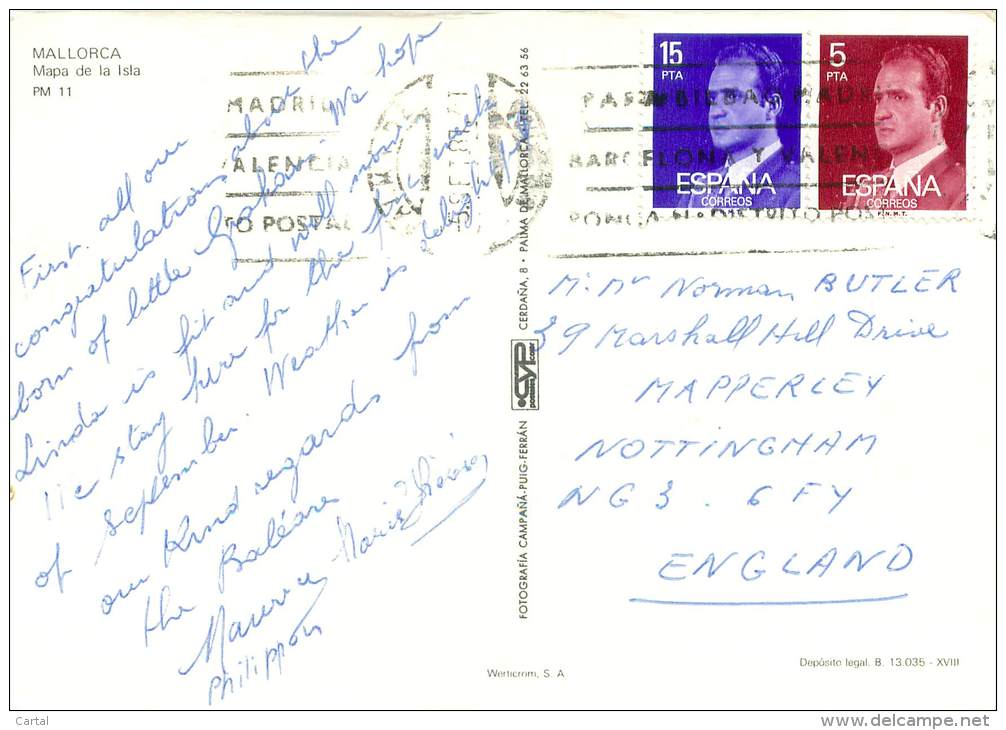 MALLORCA
Mapa de la Isla
PM 11
First all our
congratulations about the
born of little
Linda is fit and well We hope
We stay here for the first week
of September. Weather is delightful
our Kind regards from
the Baléares
Maurice Marie Thérèse
Philippon
MADRID
VALENCIA
TO POSTAL
FOTOGRAFÍA CAMPAÑÁ-PUIG-FERRÁN
CYP
CERDAÑA, 8 • PALMA DE MALLORCA • TEL. 22 63 56
15
PTA
ESPAÑA
CORREOS
5
PTA
ESPAÑA
CORREOS
F.N.M.T.
PARA BILBAO MADR
BARCELONA Y VALEN
PONGA N.º DISTRITO POS
M. Mr Norman BUTLER
39 Marshall Hill Drive
MAPPERLEY
NOTTINGHAM
NG3. 6FY
ENGLAND
Werticrom, S. A
Depósito legal. B. 13.035 - XVIII
Cartal
http://www.delcampe.net